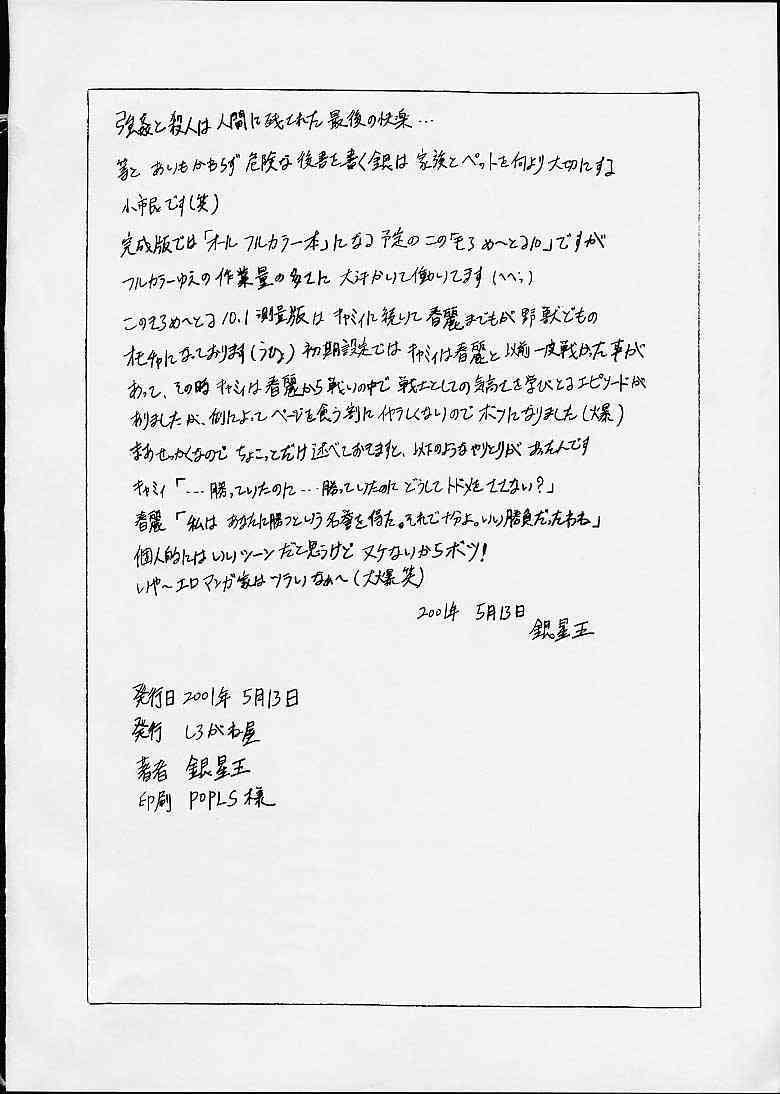 強姦と殺人は人間に残された最後の快楽…
等と あいもかわらず 危険な後書を書く銀は 家族とペットを何より大切にする
小市民です(笑)
完成版では「オールフルカラー本」になる予定のこの「そろめーとる10」ですが
フルカラーゆえの作業量の多さに 大汗かいて働いてます(へへっ)
このそろめーとる10.1 測量版は キャミィに続いて春麗までもが野獣どもの
オモチャになっております(うひょ) 初期設定では キャミィは春麗と以前一度戦かった事が
あって、その時 キャミィは春麗から戦いの中で戦士としての気高さを学びとるエピソードが
ありましたが、例によってページを食う割にイヤラしくないのでボツになりました(爆)
まあせっかくなので ちょこっとだけ述べておきますと、以下のようなやりとりがあったんです
キャミィ「…勝っていたのに…勝っていたのに どうしてトドメをささない?」
春麗「私は あなたに勝つという名誉を得た。それで十分よ。いい勝負だったわね」
個人的にはいいシーンだと思うけど ヌケないからボツ!
いや〜エロマンガ家はツラいなぁ〜(大爆笑)
2001年 5月13日
銀星王
発行日 2001年 5月13日
発行 しろがね屋
著者 銀星王
印刷 POPLS様